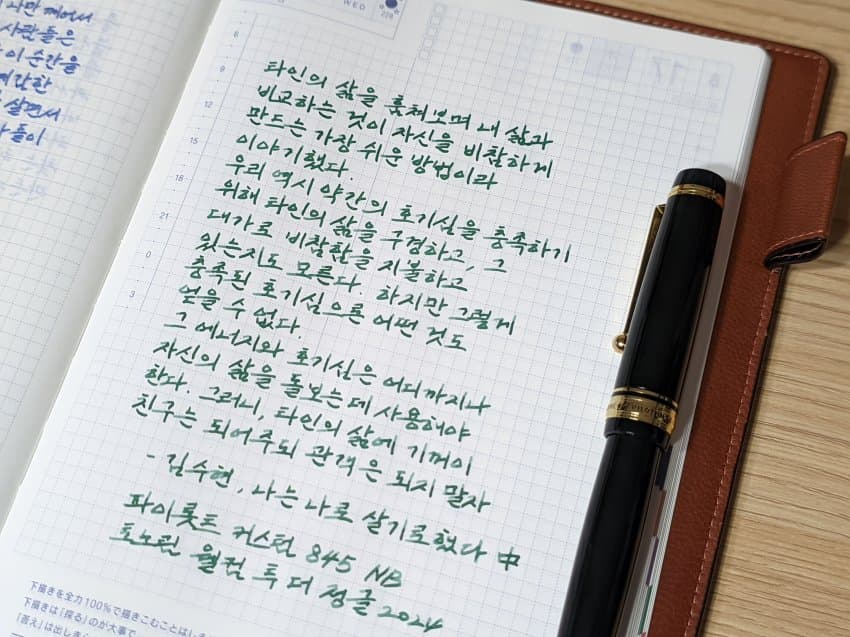 나만 깨어서
사람들은
이 순간을
살면서
WED
6
9
12
15
18
21
0
3
17
타인의 삶을 훔쳐보며 내 삶과
비교하는 것이 자신을 비참하게
만드는 가장 쉬운 방법이라
이야기했다.
우리 역시 약간의 호기심을 충족하기
위해 타인의 삶을 구경하고, 그
대가로 비참함을 지불하고
있는지도 모른다. 하지만 그렇게
충족된 호기심으론 어떤 것도
얻을 수 없다.
그 에너지와 호기심은 어디까지나
자신의 삶을 돌보는 데 사용해야
한다. 그러니, 타인의 삶에 기꺼이
친구는 되어주되 관객은 되지 말자
- 김수현, 나는 나로 살기로 했다 中
파이롯트 커스텀 845 NB
토노린 웰컴 투 더 정글 2024
下描きを全力100%で描きこむことはしま
下描きは「探る」のが大事で
「答え」は出しき